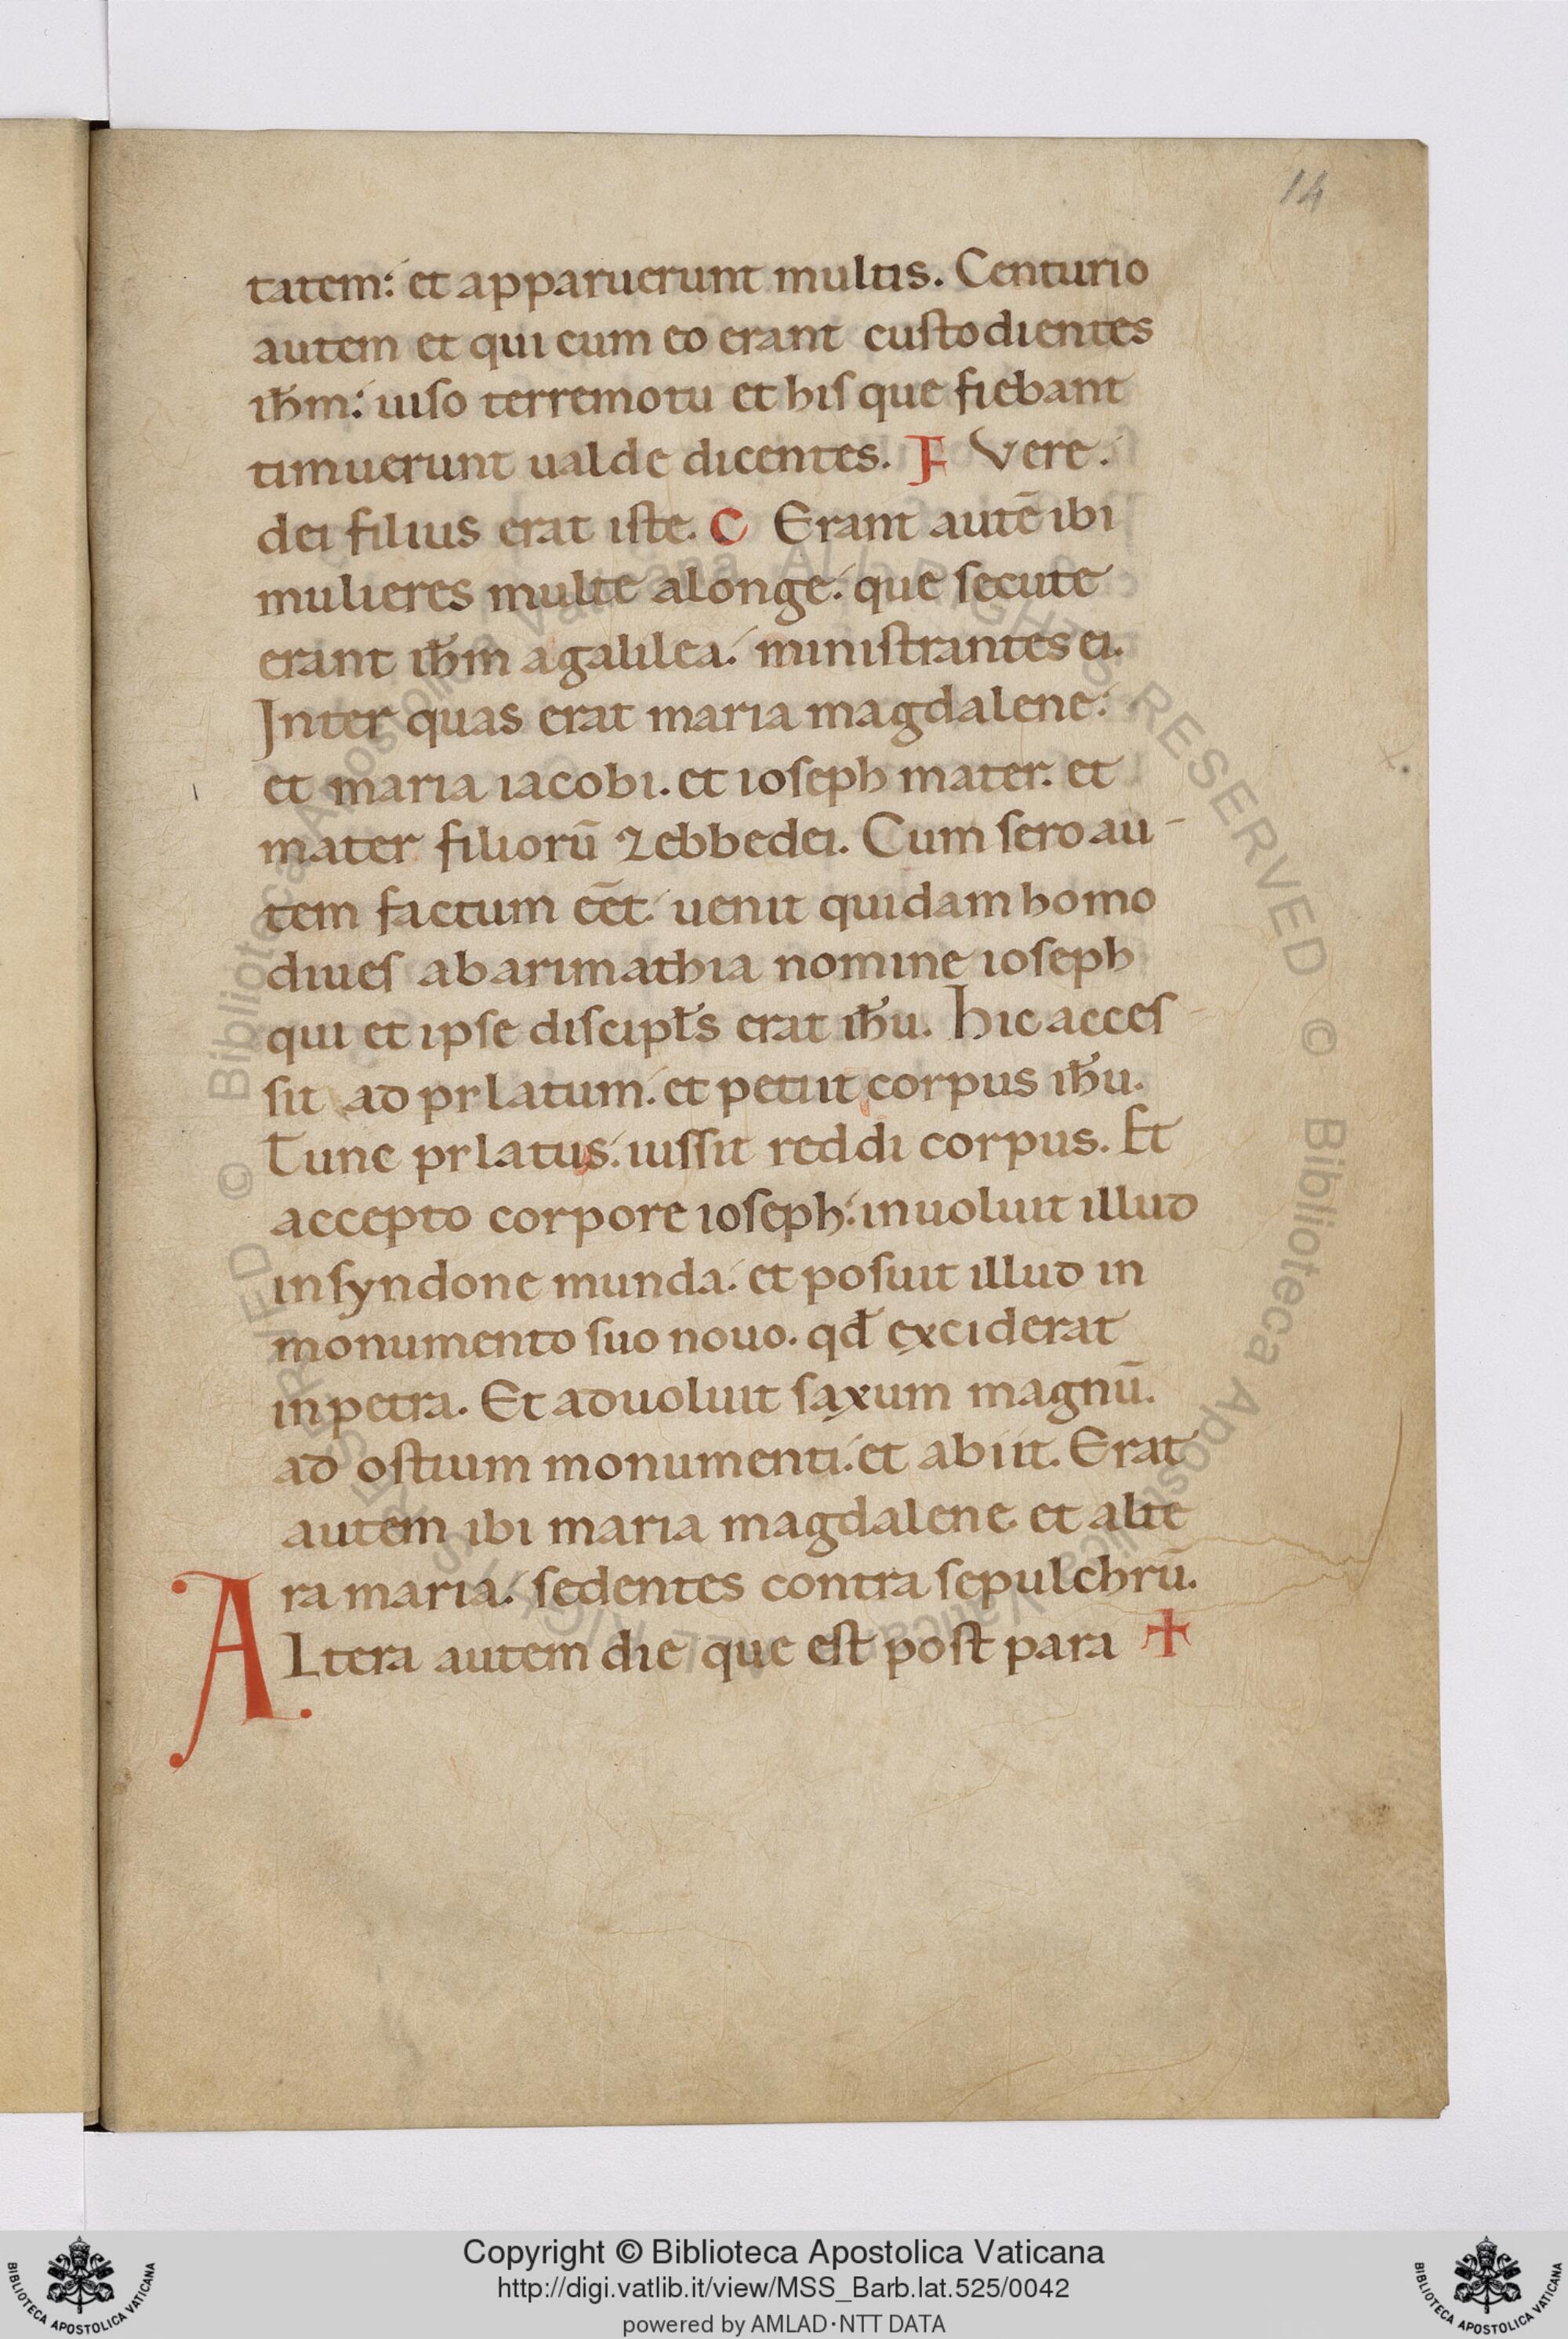 14
tatem: et apparuerunt multis. Centurio
autem et qui cum eo erant custodientes
ihm̄: uiso terremotu et his que fiebant
timuerunt ualde dicentes. F Vere.
dei filius erat iste. C Erant autē ibi
mulieres multe alonge: que secute
erant ihm̄ agalilea: ministrantes ei.
Inter quas erat maria magdalene:
et maria iacobi. et ioseph mater. et
mater filiorū zebbedei. Cum sero au-
tem factum eēt: uenit quidam homo
diues abarimathia nomine ioseph
qui et ipse discipl̄s erat ihū. Hic acces
sit ad prlatum: et petiit corpus ihū.
Tunc prlatus: iussit reddi corpus. Et
accepto corpore ioseph: inuoluit illud
insyndone munda: et posuit illud in
monumento suo nouo. qd̄ exciderat
inpetra. Et aduoluit saxum magnū.
ad ostium monumenti: et abiit. Erat
autem ibi maria magdalene et alte
ra maria: sedentes contra sepulchrū.
ALtera autem die que est post para +
Copyright © Biblioteca Apostolica Vaticana
http://digi.vatlib.it/view/MSS_Barb.lat.525/0042
powered by AMLAD·NTT DATA
BIBLIOTECA APOSTOLICA VATICANA
BIBLIOTECA APOSTOLICA VATICANA